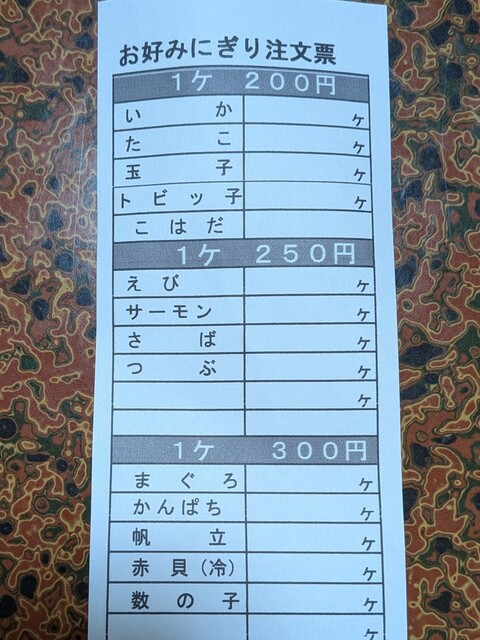 お好みにぎり注文票
1ケ 200円
いか ヶ
たこ ヶ
玉子 ヶ
トビッ子 ヶ
こはだ
1ケ 250円
えび ヶ
サーモン ヶ
さば ヶ
つぶ ヶ
ヶ
1ケ 300円
まぐろ ヶ
かんぱち ヶ
帆立 ヶ
赤貝(冷) ヶ
数の子 ヶ
ヶ